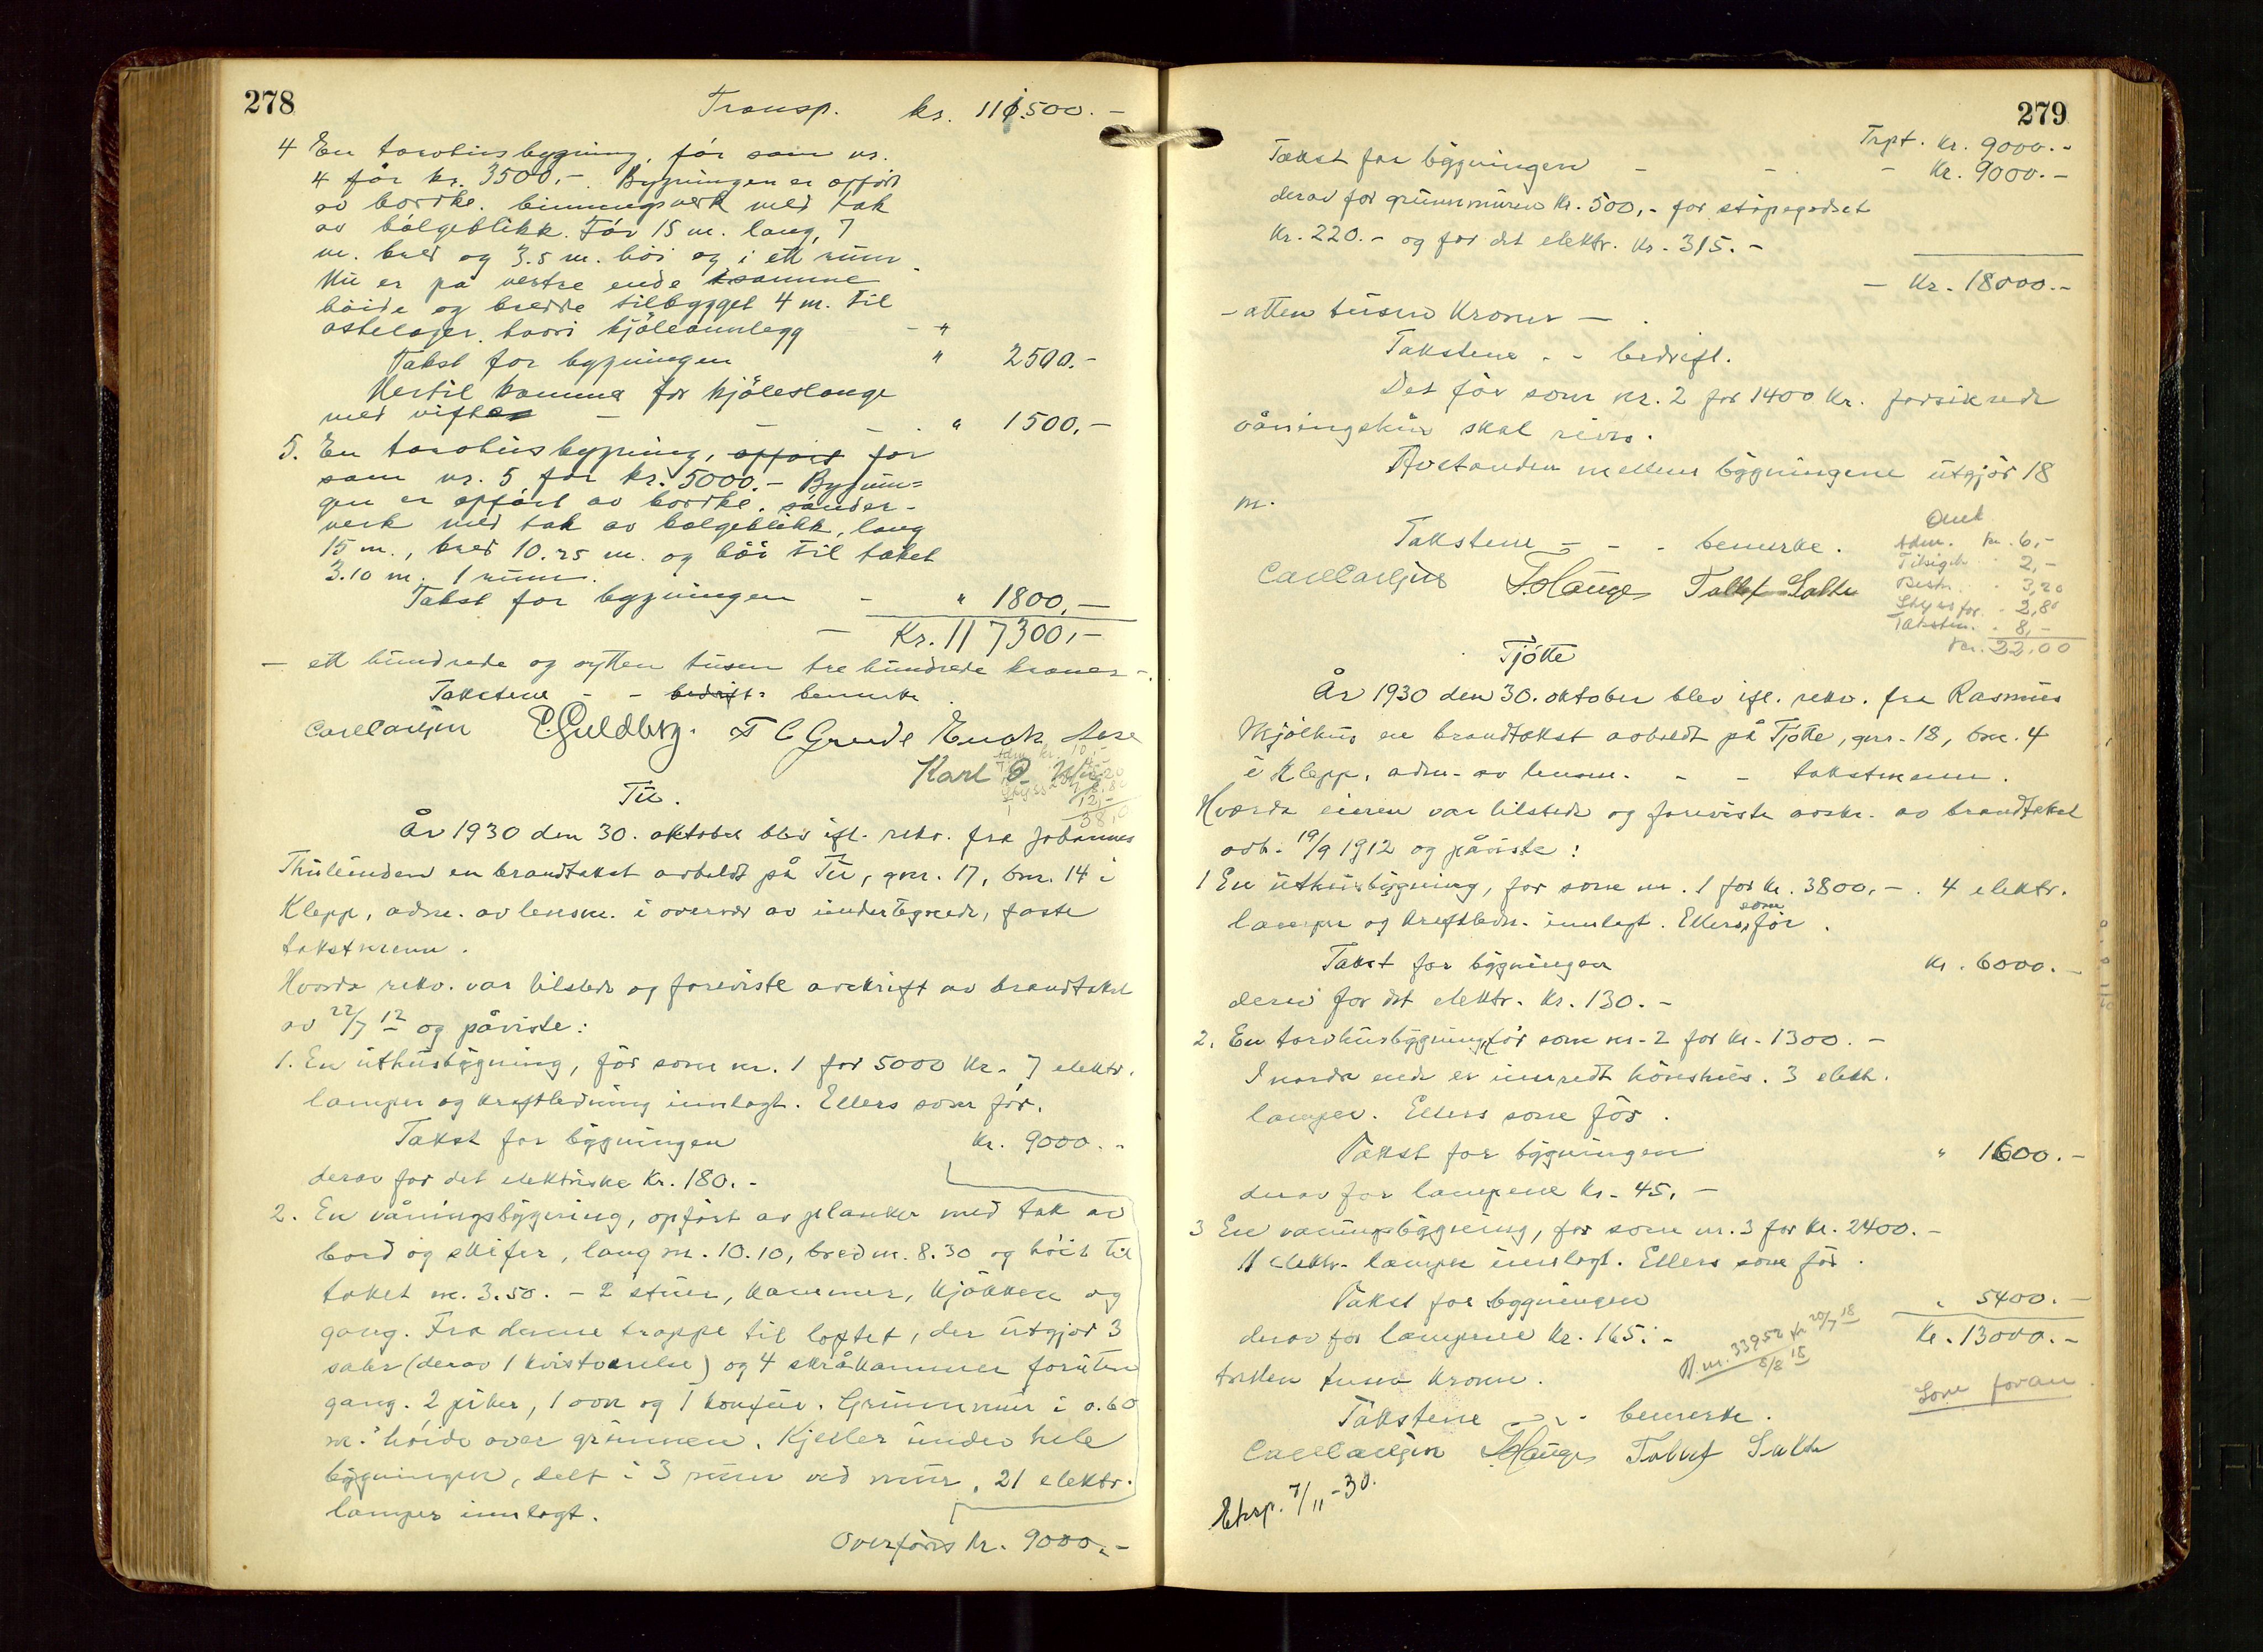 278
Transp. kr. 111.500.-
4 En torvhusbygning, før som nr.
4 før kr. 3500,-. Bygningen er opført
av bordkl. binningsverk med tak
av bølgeblikk. Før 15 m. lang, 7
m. bred og 3.5 m. høi og i ett rum.
Nu er på vestre ende samme
høide og bredde tilbygget 4 m. til
ostelager, hvori kjøleannlegg - "
Takst for bygningen " 2500.-
Hertil kommer for kjøleslange
med vifte - - - " 1500,-
5. En torvhusbygning, opført før
som nr. 5 for kr. 5000.- Bygnin=
gen er opført av bordkl. sonder-
verk med tak av bølgeblikk, lang
15 m., bred 10.25 m. og høi til taket
3.10 m. 1 rum.
Takst for bygningen - " 1800,-
- Kr. 117300,-
- ett hundrede og sytten tusen tre hundrede kroner -.
Takstene - - bedrift: bemerke.
Carl Carlsen E. Guldberg. T C Grude Enok
Karl
Tu.
År 1930 den 30. oktober blev ifl. rekv. fra Johannes
Thulinden en brandtakst avholdt på Tu, gnr. 17, bnr. 14 i
Klepp, adm. av lensm. i overvær av undertegnede, faste
takstmenn.
Hvorda rekv. var tilstede og foreviste avskrift av brandtakst
av 22/7 12 og påviste:
1. En uthusbygning, før som nr. 1 for 5000 Kr. 7 elektr.
lamper og kraftledning innlagt. Ellers som før.
Takst for bygningen Kr. 9000.-
derav for det elektriske Kr. 180.-
2. En våningsbygning, opført av planker med tak av
bord og skifer, lang m. 10.10, bred m. 8.30 og høit til
taket m. 3.50. - 2 stuer, kammer, kjøkken og
gang. Fra denne trappe til loftet, der utgjør 3
saler (derav 1 kvistværelse) og 4 skråkammer foruten
gang. 2 piber, 1 ovn og 1 komfur. Grunnmur i 0.60
m.s høide over grunnen. Kjeller under hele
bygningen, delt i 3 rum ved mur. 21 elektr.
lamper innlagt.
Overføres Kr. 9000.-
279
Trpt. Kr. 9000.-
Takst for bygningen - - - Kr. 9000.-
derav for grunnmuren Kr. 500,- for støpegodset
Kr. 220.- og for det elektr. Kr. 315.-
- Kr. 18000.-
- atten tusen kroner -.
Takstene - - bedrift.
Det før som nr. 2 for 1400 Kr. forsikrede
våningshus skal rives.
Avstanden mellem bygningene utgjør 18
m.
Takstene - - - bemerke.
Carl Carlsen T. Hauge
Adm. kr. 6,-
2,-
3,20
2,80
Taksten. 8,-
Kr. 22.00
Tjøtte
År 1930 den 30. oktober blev ifl. rekv. fra Rasmus
Mjølhus en brandtakst avholdt på Tjøtte, gnr. 18, bnr. 4
i Klepp, adm. av lensm. - - takstmenn.
Hvorda eieren var tilstede og foreviste avskr. av brandtakst
avh. 19/9 1912 og påviste:
1 En uthusbygning, før som nr. 1 for Kr. 3800,-. 4 elektr.
lamper og kraftledn. innlagt. Ellers som før.
Takst for bygningen Kr. 6000.-
derav for det elektr. Kr. 130.-
2. En torvhusbygning, før som nr. 2 for Kr. 1300.-
I nordre ende er innredt hønshus. 3 elektr.
lamper. Ellers som før.
Takst for bygningen " 1600.-
derav for lampene Kr. 45,-
3 En våningsbygning, før som nr. 3 for Kr. 2400.-
11 elektr. lamper innlagt. Ellers som før.
Takst for bygningen " 5400.-
derav for lampene Kr. 165.- Kr. 13000.-
tretten tusen kroner.
Som foran
Takstene - - bemerke.
Carl Carlsen T. Hauge
Eksp. 7/11-30.